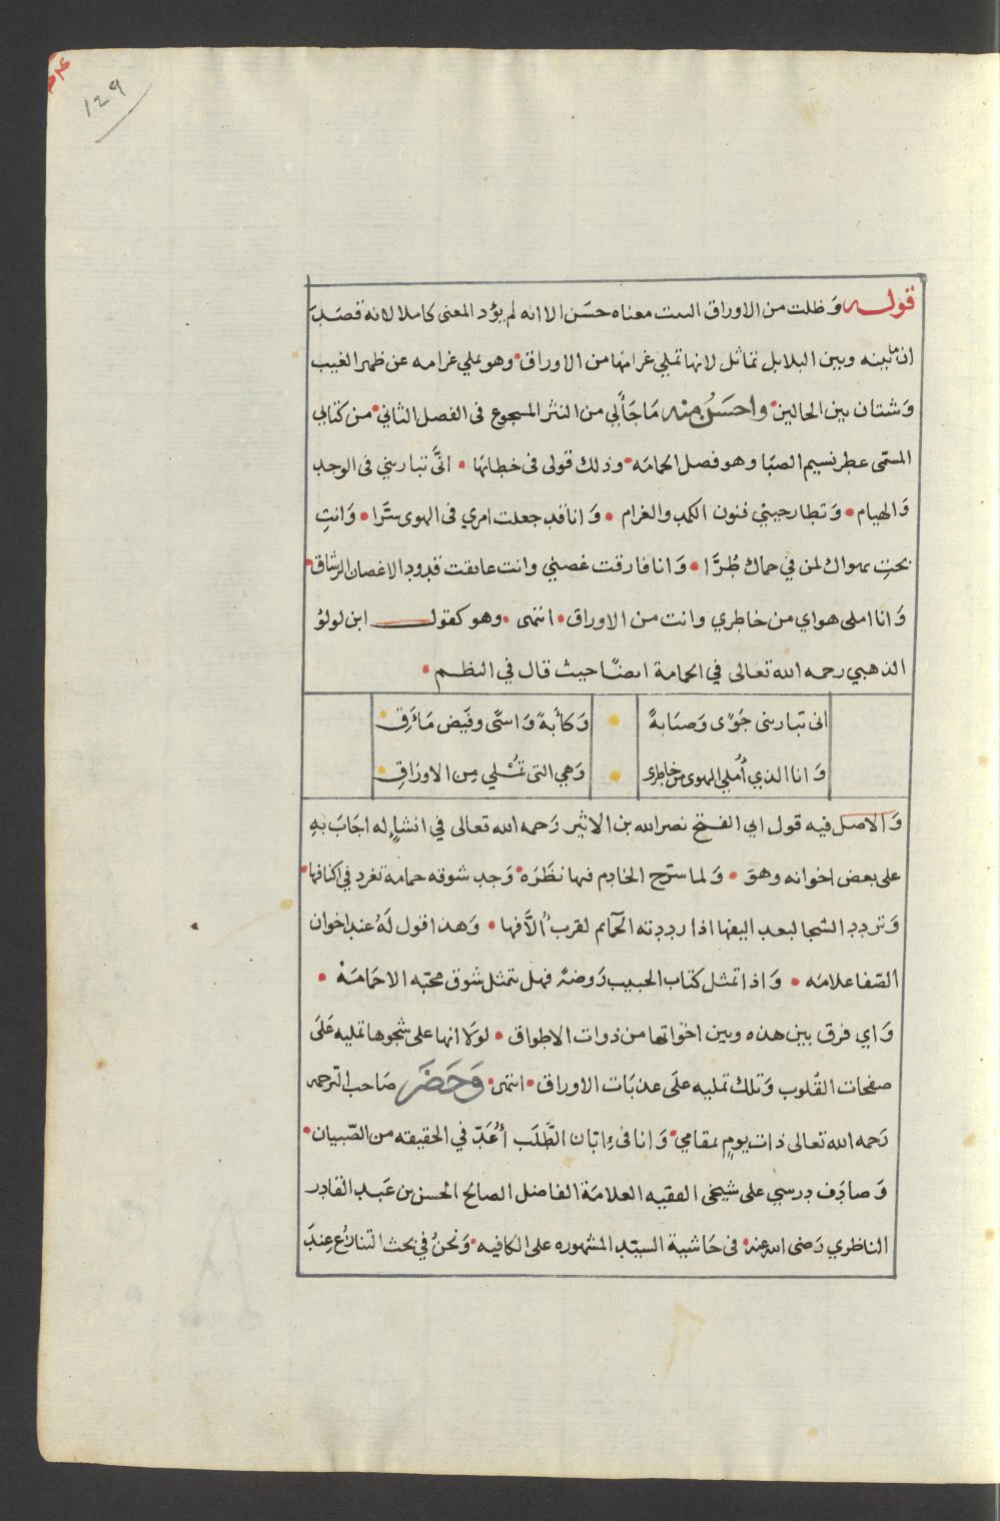 ١٤٩
قوله وَظلت من الاوراق البيت معناه حسَن الا انه لم يؤد المعنى كاملا لانه قصَدَ
ان ما بينه وبين البلابل تماثل لانها تملي غرامها من الاوراق وهو يملي غرامه عن ظهر الغيب
وَشتان بين الحالين واحسَنُ منه مَا جَأ لي من النثر المسجوع فى الفصل الثاني من كتابي
المسمّى عطر نسيم الصبَا وهو فصل الحمامَه وذلك قولى فى خطابها • انَّى تبارينى فى الوجد
وَالهيام • وَتطارحيني فنون الكمد والغرام • وَانا قد جعلت امري فى الهوى سِرًّا • وَانتِ
بحتِ بهواك لمن في حماك طُرًّا • وَانا فارقت غصني وانت عانقت قدود الاغصان الرشاق
وَانا املى هواي من خاطري وانت من الاوراق • انتهى • وهو كقول ابن لولؤ
الذهبي رحمه الله تعالى في الحمامة ايضًا حيث قال في النظم •
انى تبارينى جَوًى وَصبَابةً • وَكأبةً وَاسًى وفَيض مَاۤقِ
وَانا الذي أُملي الهوى من خاطرى • وَهي التى تُملي مِن الاورَاقِ
وَالاصل فيه قول ابي الفتح نصر الله بن الاثير رَحمه الله تعالى في انشإٍ له اجَابَ بهِ
على بعض اخوانه وهوَ • وَلما سرّح الخادم فيها نظَرَه وَجد شوقه حمامة تغرد في اكنافها
وَتردد الشجا لبعد اليفها اذا رددته الحَمآم لقرب اُلَّافها • وَهذا قول لَهُ عند اخوان
الصّفا علامَه • وَاذا تمثل كتاب الحبيب رَوضة فهل يتمثل شوق محبّه الا حمَامَهْ •
وَاي فرق بين هذه وبين اخواتها من ذوات الاطواق • لولا انها على شجوها تمليه عَلَى
صفحات القُلوب وَتلك تمليه علَى عذبَات الاوراق • انتهى • وَحَضَرَ صَاحب الترجمه
رَحمه الله تعالى ذات يومٍ بمقامي وَانا فى إبّان الطَّلَب أُعَدّ في الحقيقه من الصّبيان
وَصادَف درسي على شيخى الفقيه العلامَة الفاضل الصالح الحسن بن عَبد القادر
الناظري رَضى الله عنه فى حَاشية السيّد المشهوره على الكافيه وَنحنُ في بحث التنازُع عِندَ